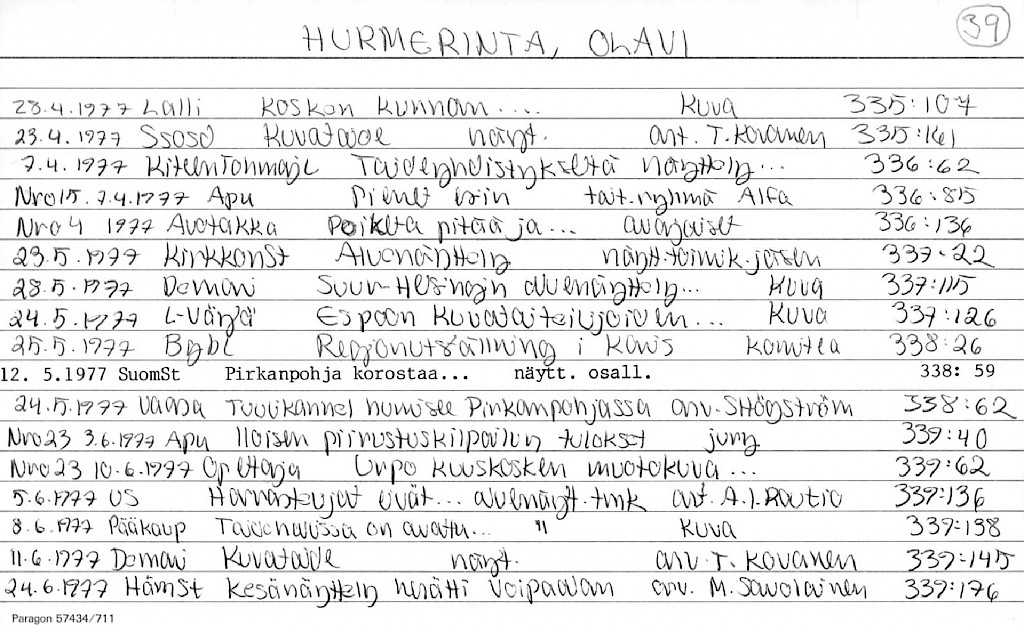 39
HURMERINTA, OLAVI
28.4.1977 Lalli Kosken kunnan.... Kuva 335:107
23.4.1977 Ssosd Kuvataide näyt. arv. T. Kovanen 335:161
7.4.1977 KiteenTohmajl Taideyhdistykseltä näyttely... 336:62
Nro15. 7.4.1977 Apu Pienet tait.ryhmä Alfa 336:85
Nro 4 1977 Avotakka Poiketa pitää ja... avajaiset 336:136
23.5.1977 KirkkonSt Aluenäyttely näytt.toimik.jäsen 337:22
28.5.1977 Demari Suur-Helsingin aluenäyttely... Kuva 337:115
24.5.1977 L-Väylä Espoon Kuvataiteilijoiden... Kuva 337:126
25.5.1977 Bgbl Regionutställning i Karis Komitea 338:26
12. 5.1977 SuomSt Pirkanpohja korostaa... näytt. osall. 338: 59
24.5.1977 Vaasa Tuulikannel humisee Pirkanpohjassa arv. SHögström 338:62
Nro23 3.6.1977 Apu Iloisen piirustuskilpailun tulokset jury 339:40
Nro23 10.6.1977 Opettaja Urpo Kuuskosken muotokuva... 339:62
5.6.1977 US Harrastelijat ... aluenäyt.tmk arv. A.I.Routio 339:136
8.6.1977 Pääkaup Taidehallissa on avattu... " Kuva 339:138
11.6.1977 Demari Kuvataide näyt. arv T. Kovanen 339:145
24.6.1977 HämSt Kesänäyttely herätti Voipaalan arv. M. Savolainen 339:176
Paragon 57434/711